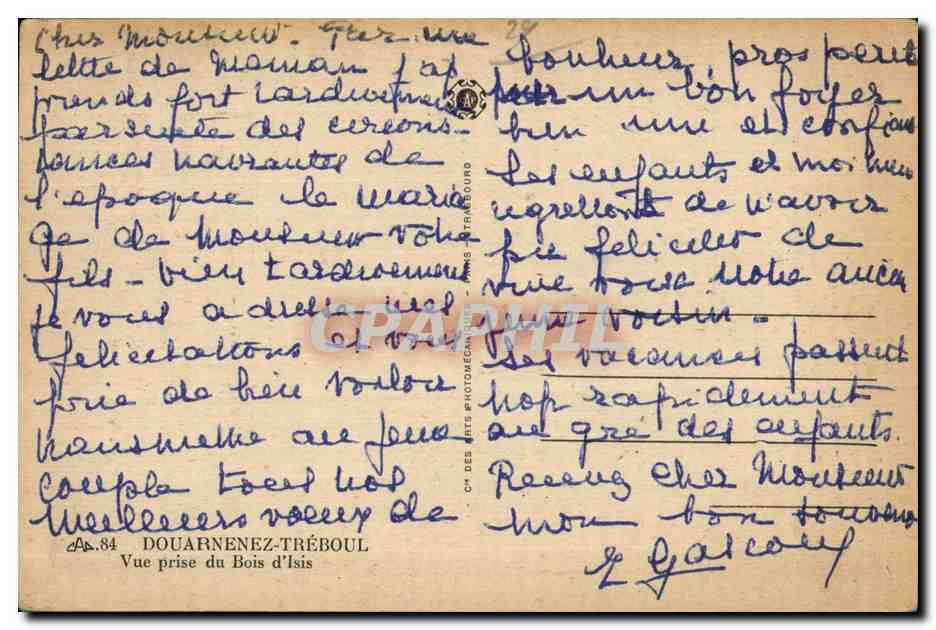 Cher Monsieur. Par une
lettre de Maman j'ap
prends fort tardivement
par suite des circons-
tances navrantes de
l'epoque le maria
ge de Monsieur votre
fils - bien tardivement
je vous adresse mes
felicitations et vous
prie de bien vouloir
transmettre au jeune
couple tous nos
meilleurs voeux de
CAP.84 DOUARNENEZ-TRÉBOUL
Vue prise du Bois d'Isis
Cie DES ARTS PHOTOMÉCANIQUES PARIS - STRASBOURG
29
bonheur, prosperité
pour un bon foyer
bien uni et confiant
Les enfants et moi-meme
regrettons de n'avoir
pu feliciter de
vive voix notre ancien
jeune voisin -
Les vacances passent
trop rapidement
au gré des enfants.
Recevez Cher Monsieur
mon bon souvenir
Gascouy
CPAPHIL